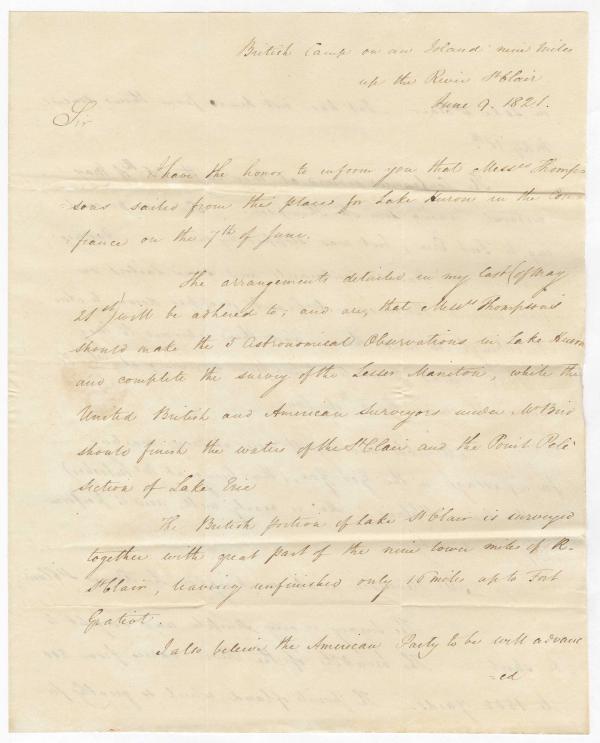 British Camp on an Island nine miles
up the River St Clair
June 9. 1821.
Sir
I have the honor to inform you that Messrs Thomp
sons sailed from this place for Lake Huron in the Con-
fiance on the 7th of June.
The arrangements detailed in my last (of May
21st) will be adhered to; and are, that Messrs Thompsons
should make the 5 Astronomical Observations in Lake Huron
and complete the survey of the Lesser Maniton, while the
United British and American Surveyors under Mr Bird
should finish the waters of the St Clair and the Point Pelé
section of Lake Erie
The British portion of Lake St Clair is surveyed
together with great part of the nine lower miles of R.
St Clair, leaving unfinished only 16 miles up to Fort
Gratiot.
I also beleive the American Party to be well advanc
-ed